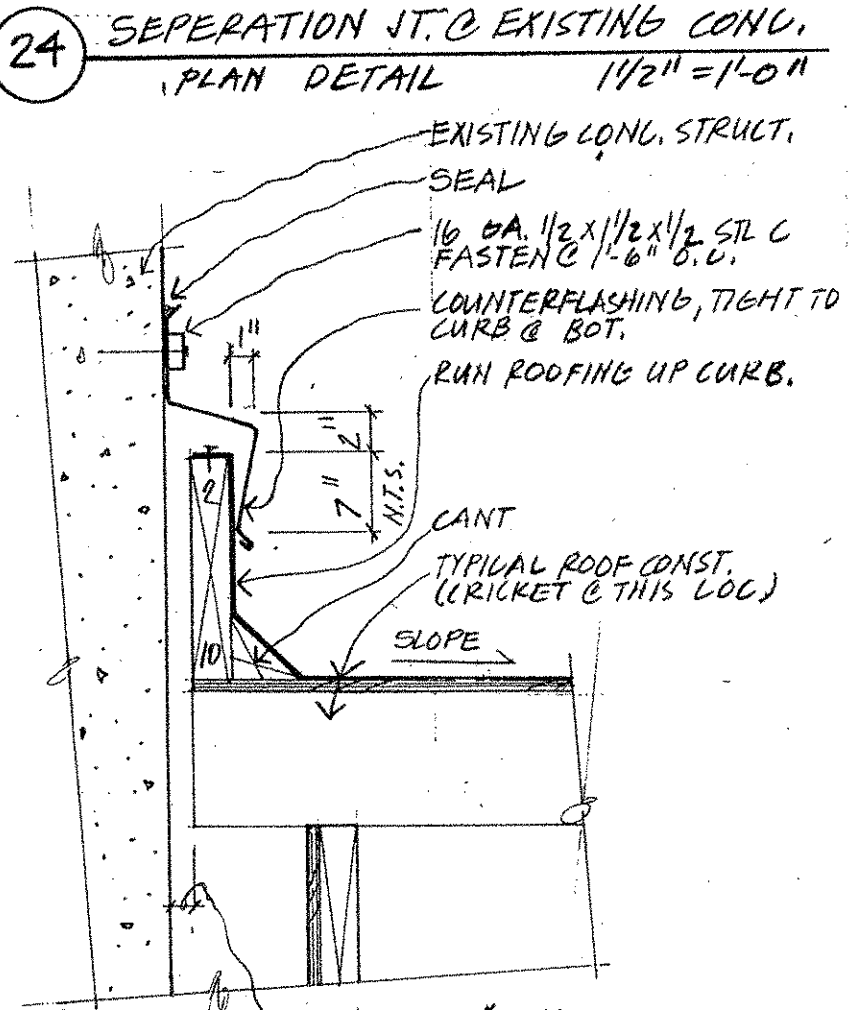 24
SEPERATION JT. @ EXISTING CONC.
PLAN DETAIL 1 1/2" = 1'-0"
EXISTING CONC. STRUCT.
SEAL
16 GA. 1/2 X 1 1/2 X 1/2 STL C
FASTEN @ 1'-6" O.C.
COUNTERFLASHING, TIGHT TO
CURB @ BOT.
RUN ROOFING UP CURB.
1"
2"
7"
N.T.S.
2
10
CANT
TYPICAL ROOF CONST.
(CRICKET @ THIS LOC)
SLOPE